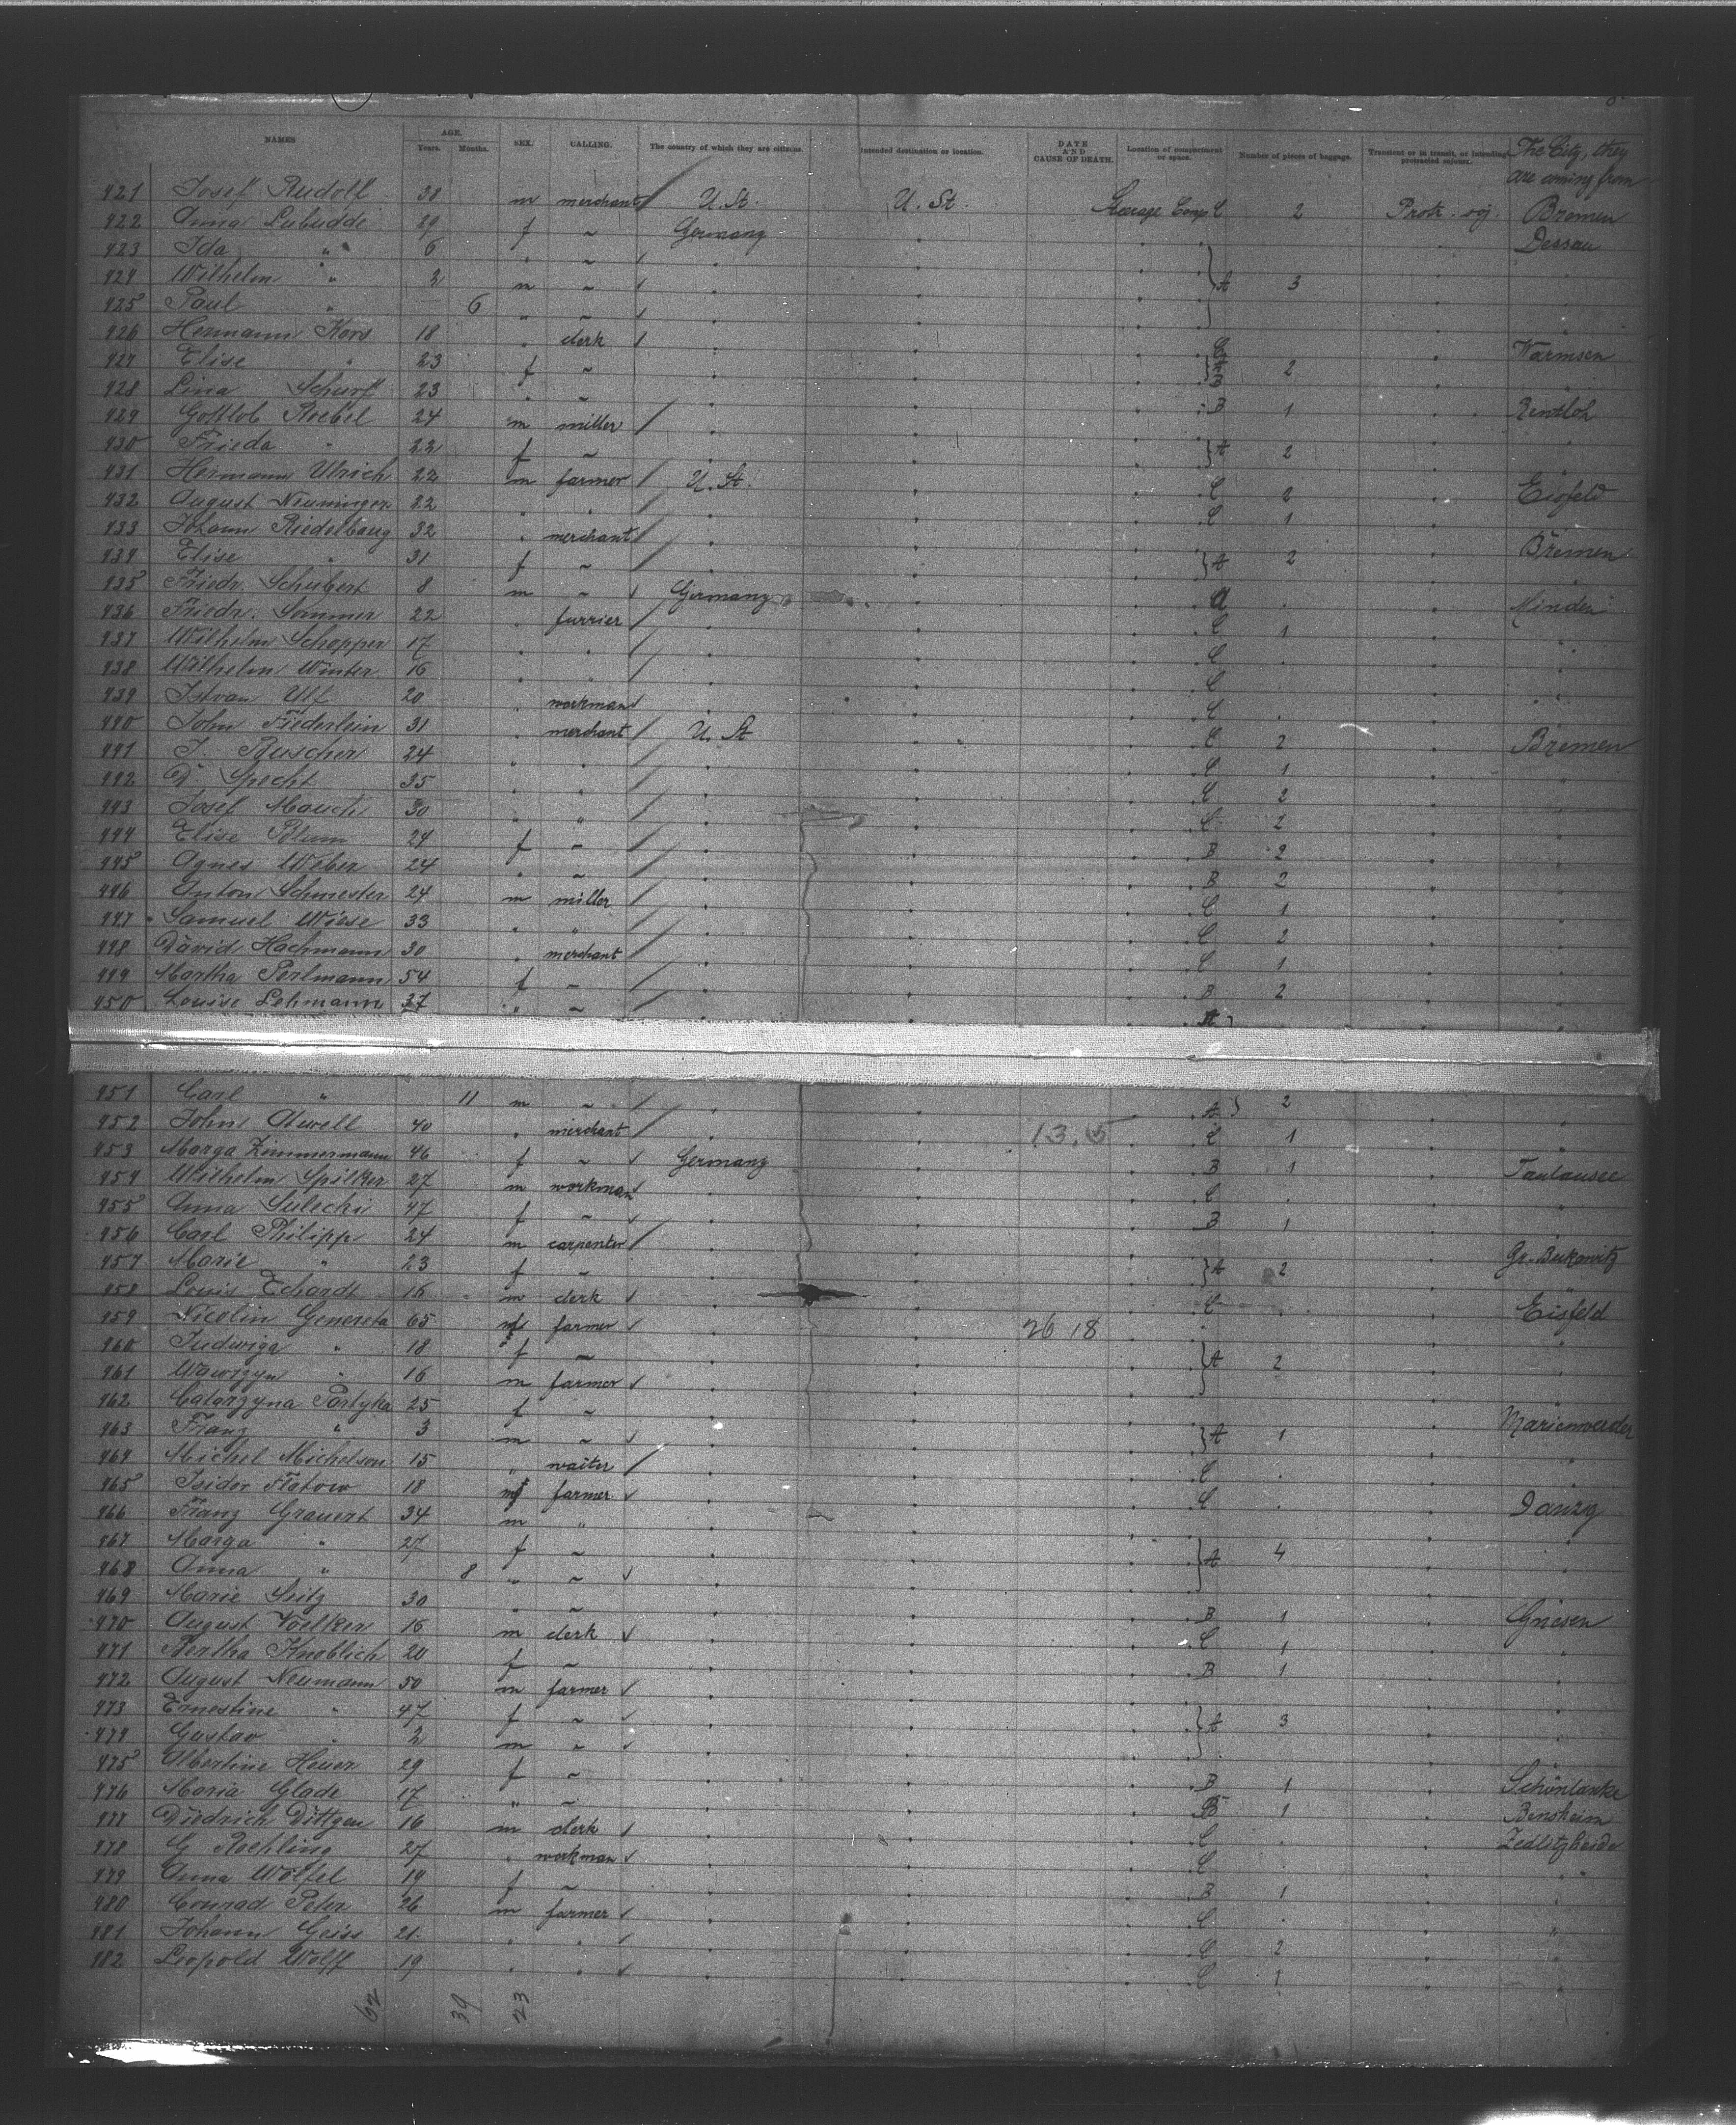 NAMES AGE. Years. Months. SEX. CALLING. The country of which they are citizens. Intended destination or location. DATE AND CAUSE OF DEATH. Location of compartment or space. Number of pieces of baggage. Transient or in transit, or intending protracted sojourn. The City, they are coming from
421 Josef Rudolf 38 m merchant U. St. U. St. Steerage Comp C 2 Protr. soj. Bremen
422 Anna Lubudde 29 f ~ Germany Dessau
423 Ida " 6 ~
424 Wilhelm " 2 m ~ A 3
425 Paul " 6 ~
426 Hermann Kors 18 clerk C Warmsen
427 Elise " 23 f ~ 2
428 Lina Schurf 23 ~ B
429 Gottlob Roebel 24 m miller B 1
430 Frieda " 22 f ~ A 2
431 Hermann Ulrich 22 m farmer U. St. C 2 Eisfeld
432 August Neuninger 22 C 1
433 Johann Riedelbaug 32 merchant Bremen
434 Elise " 31 f ~ A 2
435 Friedr. Schubert 8 m ~ Germany A Minden
436 Friedr. Sommer 22 furrier C 1
437 Wilhelm Schopper 17 " C
438 Wilhelm Winter 16 " C
439 Istvan Ulf 20 workman C
440 John Fiederlein 31 merchant U. St C 2 Bremen
441 J. Buscher 24 " C 1
442 D. Specht 35 " C 2
443 Josef Mauch 30 " " C 2
444 Elise Blum 24 f ~ B 2
445 Agnes Weber 24 ~ B 2
446 Anton Schmester 24 m miller C 1
447 Samuel Wiese 33 " C 2
448 David Hachmann 30 merchant C 1
449 Martha Perlmann 54 f ~ B 2
450 Louise Lehmann 37 " ~ A
451 Carl " 11 m ~ A 2
452 John Atwell 40 merchant 13.5 C 1
453 Marga Zimmermann 46 f ~ Germany B 1
454 Wilhelm Spilker 27 m workman C
455 Anna Sulechi 47 f ~ B 1
456 Carl Philipp 24 m carpenter
457 Marie " 23 f ~ A 2
458 Louis Echardt 16 m clerk C Eisfeld
459 Nicolin Genereta 65 m farmer 26 18
460 Judwiga " 18 f ~ A 2
461 Wawrzyn " 16 m farmer
462 Catarzyna Partyka 25 f ~ Marienwerder
463 Franz " 3 m ~ A 1
464 Michel Michelson 15 " waiter C
465 Isidor Flatow 18 m farmer C Danzig
466 Franz Grauert 34 m "
467 Marga " 27 f ~ A 4
468 Anna " 8 " ~
469 Marie Seitz 30 " ~ B 1 Gnesen
470 August Voelker 16 m clerk C 1
471 Bertha Knoblich 20 f ~ B 1
472 August Neumann 50 m farmer
473 Ernestine " 47 f ~ A 3
474 Gustav " 2 m ~
475 Albertine Heuer 29 f ~ B 1 Schönlanke
476 Maria Glade 17 " ~ B 1 Bensheim
477 Diedrich Dittgen 16 m clerk C Zedlitzheide
478 G Roehling 27 workman C
479 Anna Wölfel 19 f ~ B 1
480 Conrad Peter 26 m farmer C
481 Johann Geiss 21 C 2
482 Leopold Wolff 19 C 1
62 39 23